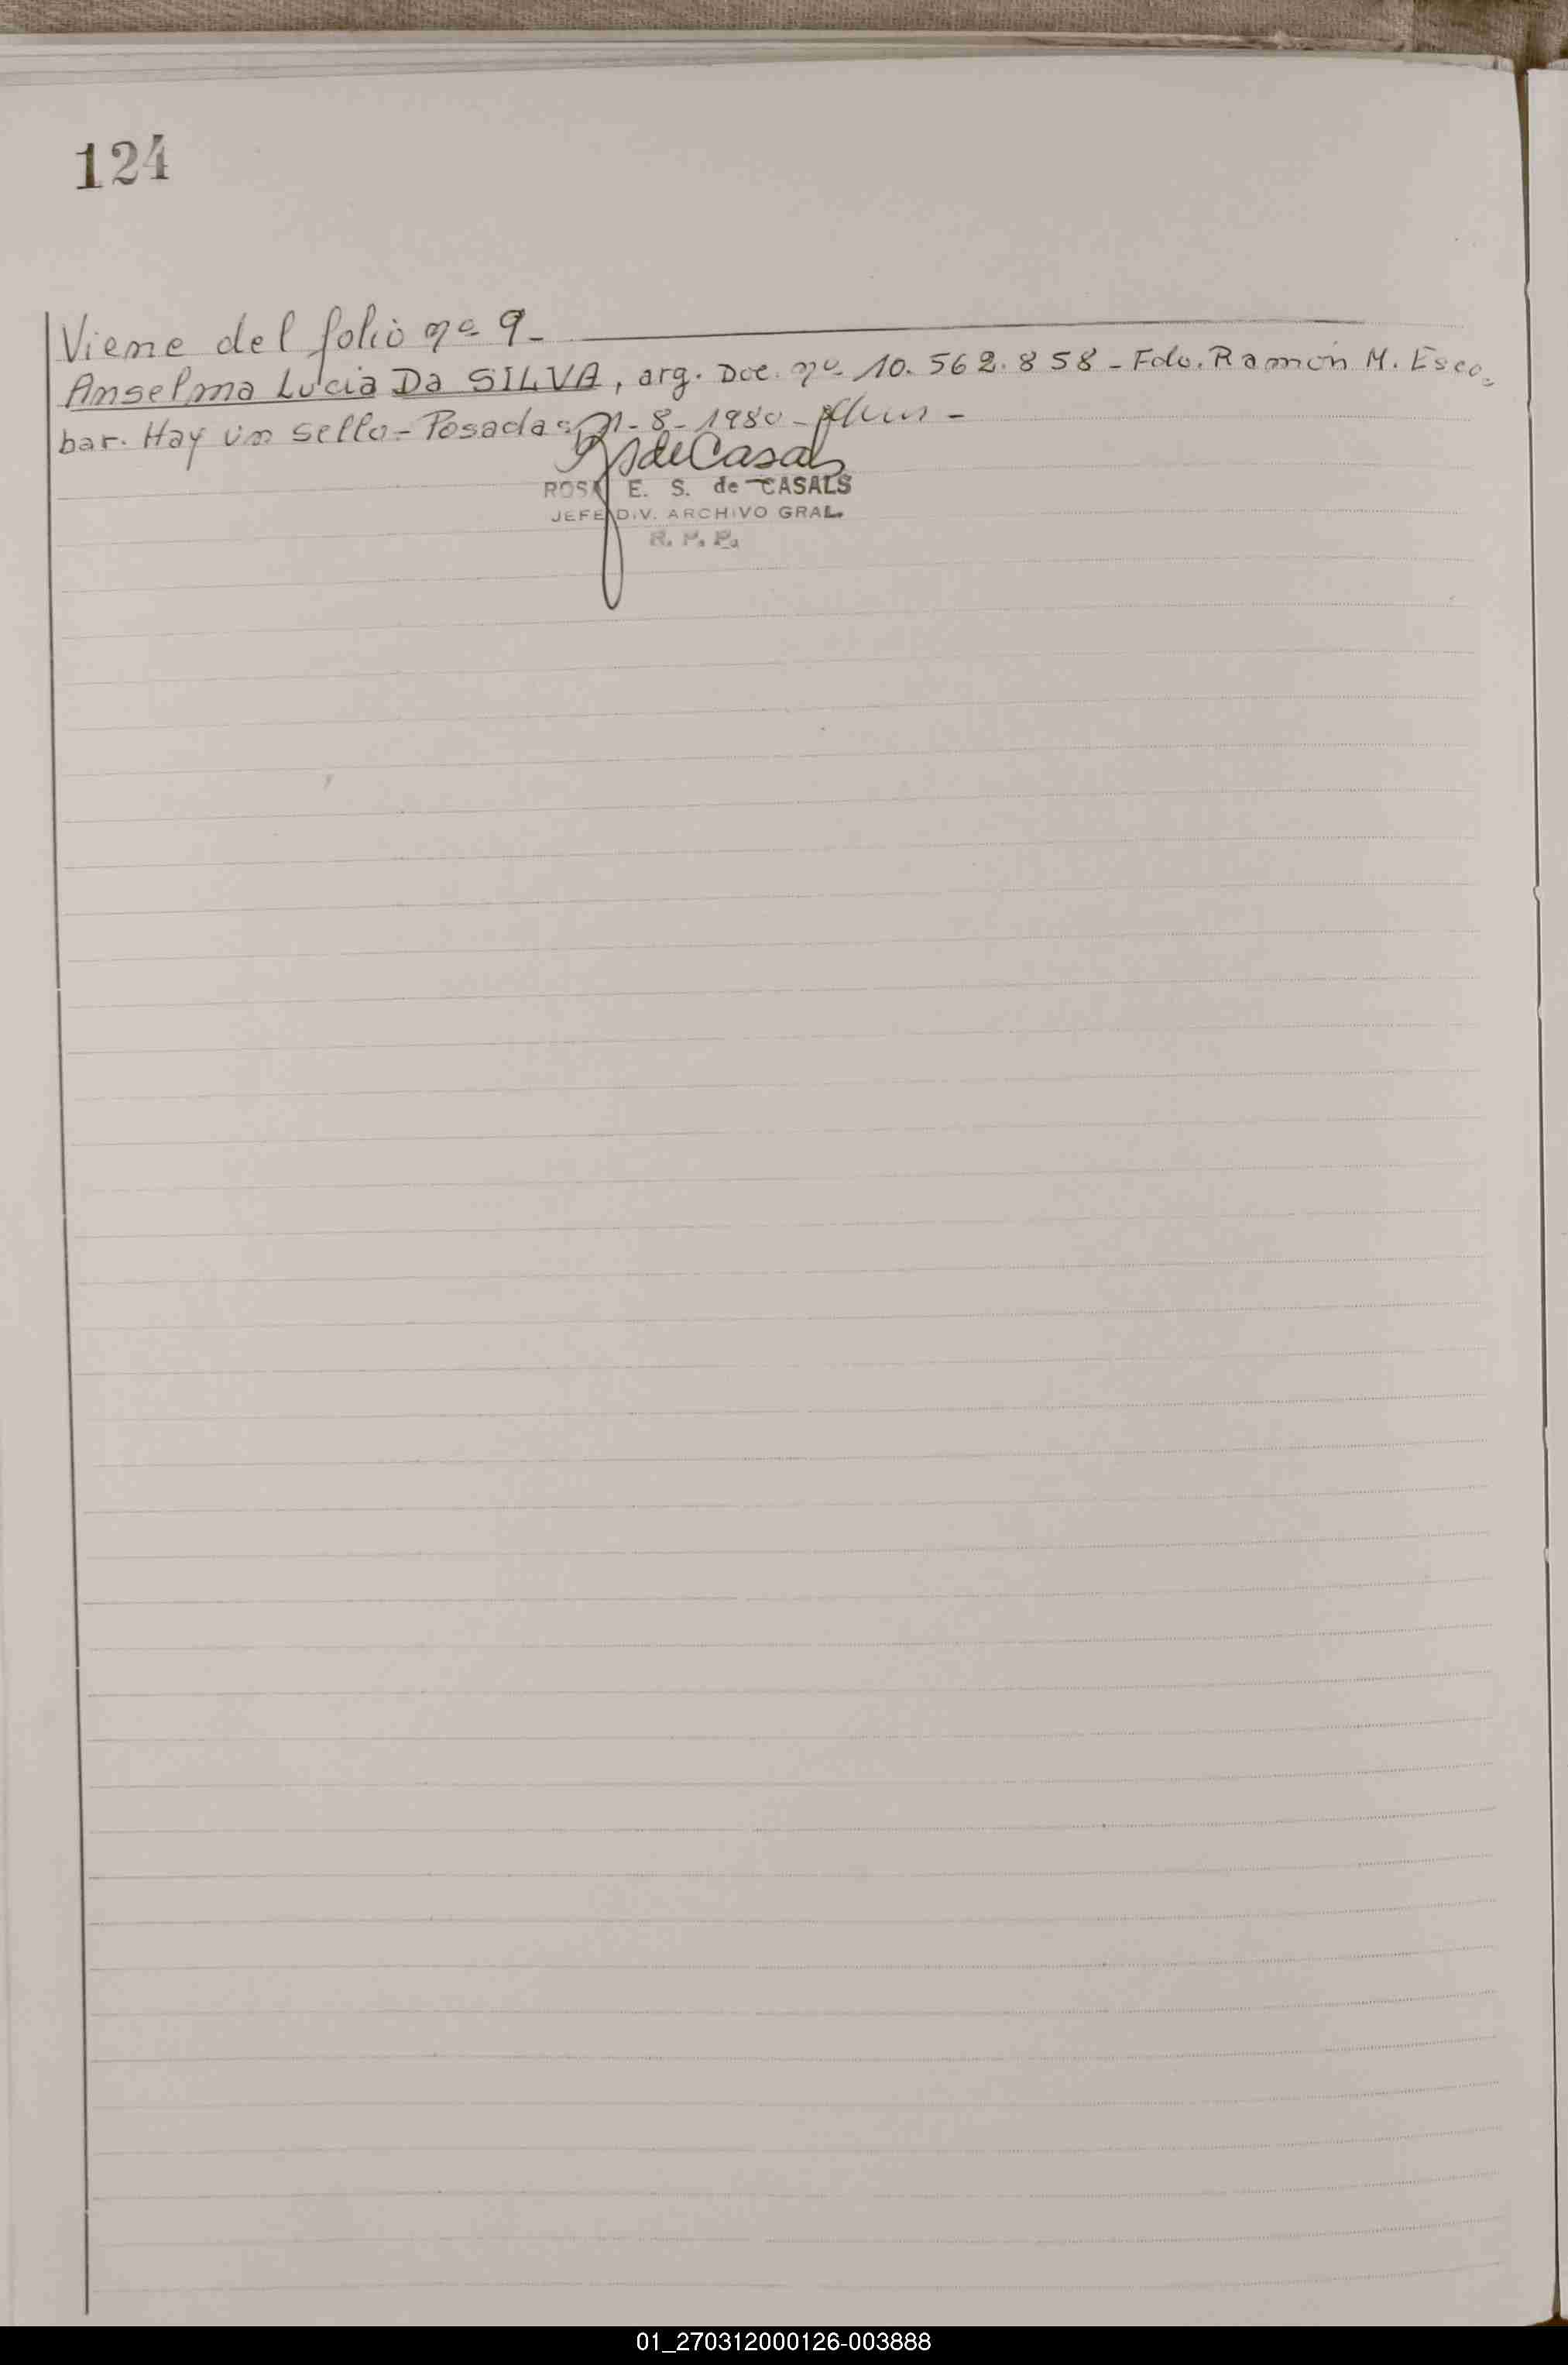 124
Viene del folio nº 9-
Anselma Lucia Da SILVA, arg. Doc. nº 10.562.858 - Fdo. Ramón M. Esco-
bar. Hay un sello - Posadas, 21-8-1980 -
RSdeCasals
ROSA E. S. de CASALS
JEFE DIV. ARCHIVO GRAL.
R. P. P.
01_270312000126-003888